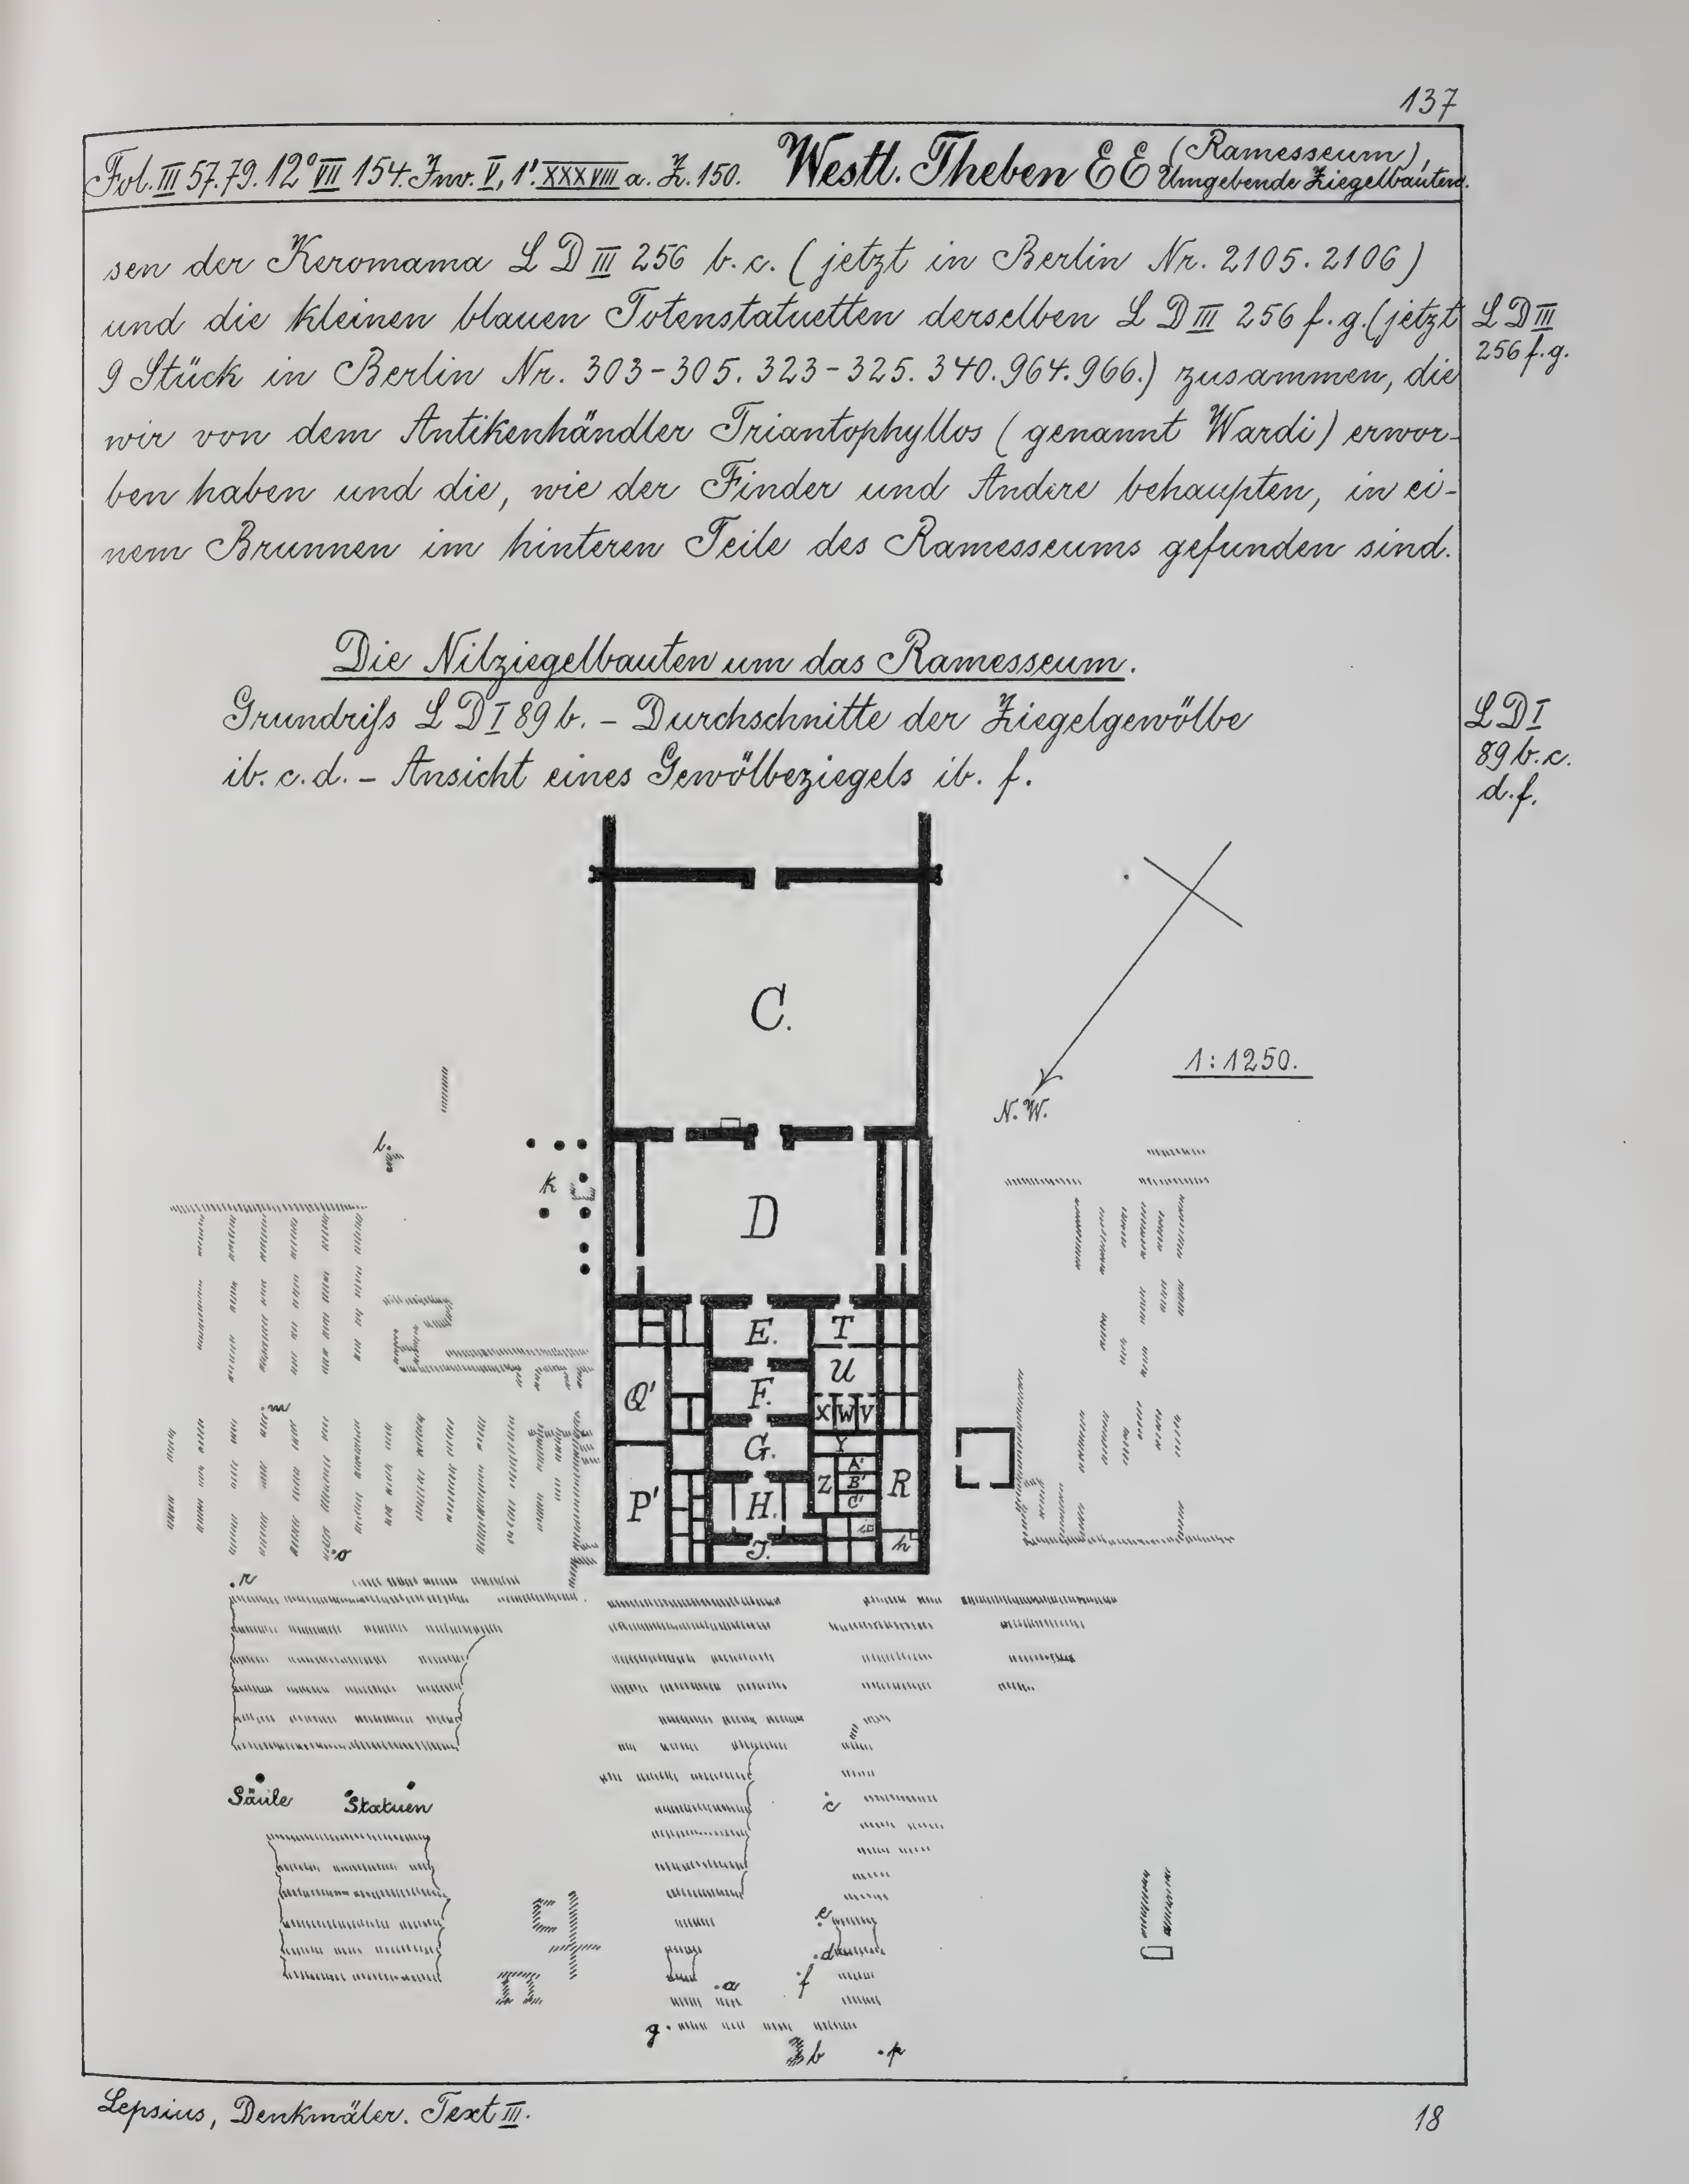 137
Fol. III 57. 79. 12° VII 154. Inv. V, 1'. XXXVIII a. Z. 150. Westl. Theben EE (Ramesseum), Umgebende Ziegelbauten.
sen der Keromama LD III 256 b. c. (jetzt in Berlin Nr. 2105. 2106)
und die kleinen blauen Totenstatuetten derselben LD III 256 f. g. (jetzt
LD III
256 f. g.
9 Stück in Berlin Nr. 303-305. 323-325. 340. 964. 966.) zusammen, die
wir von dem Antikenhändler Triantophyllos (genannt Wardi) erwor-
ben haben und die, wie der Finder und Andere behaupten, in ei-
nem Brunnen im hinteren Teile des Ramesseums gefunden sind.
Die Nilziegelbauten um das Ramesseum.
Grundriſs LD I 89 b. – Durchschnitte der Ziegelgewölbe
ib. c. d. – Ansicht eines Gewölbeziegels ib. f.
LD I
89 b. c.
d. f.
C.
1:1250.
N. W.
l.
k
D
E. T
U
Q' F. X W V
m
G. Y
Z A' R
B'
P' H. C'
i
J. h
o
r
Säule Statuen
c
e
d
a f
g
b p
Lepsius, Denkmäler. Text III.
18